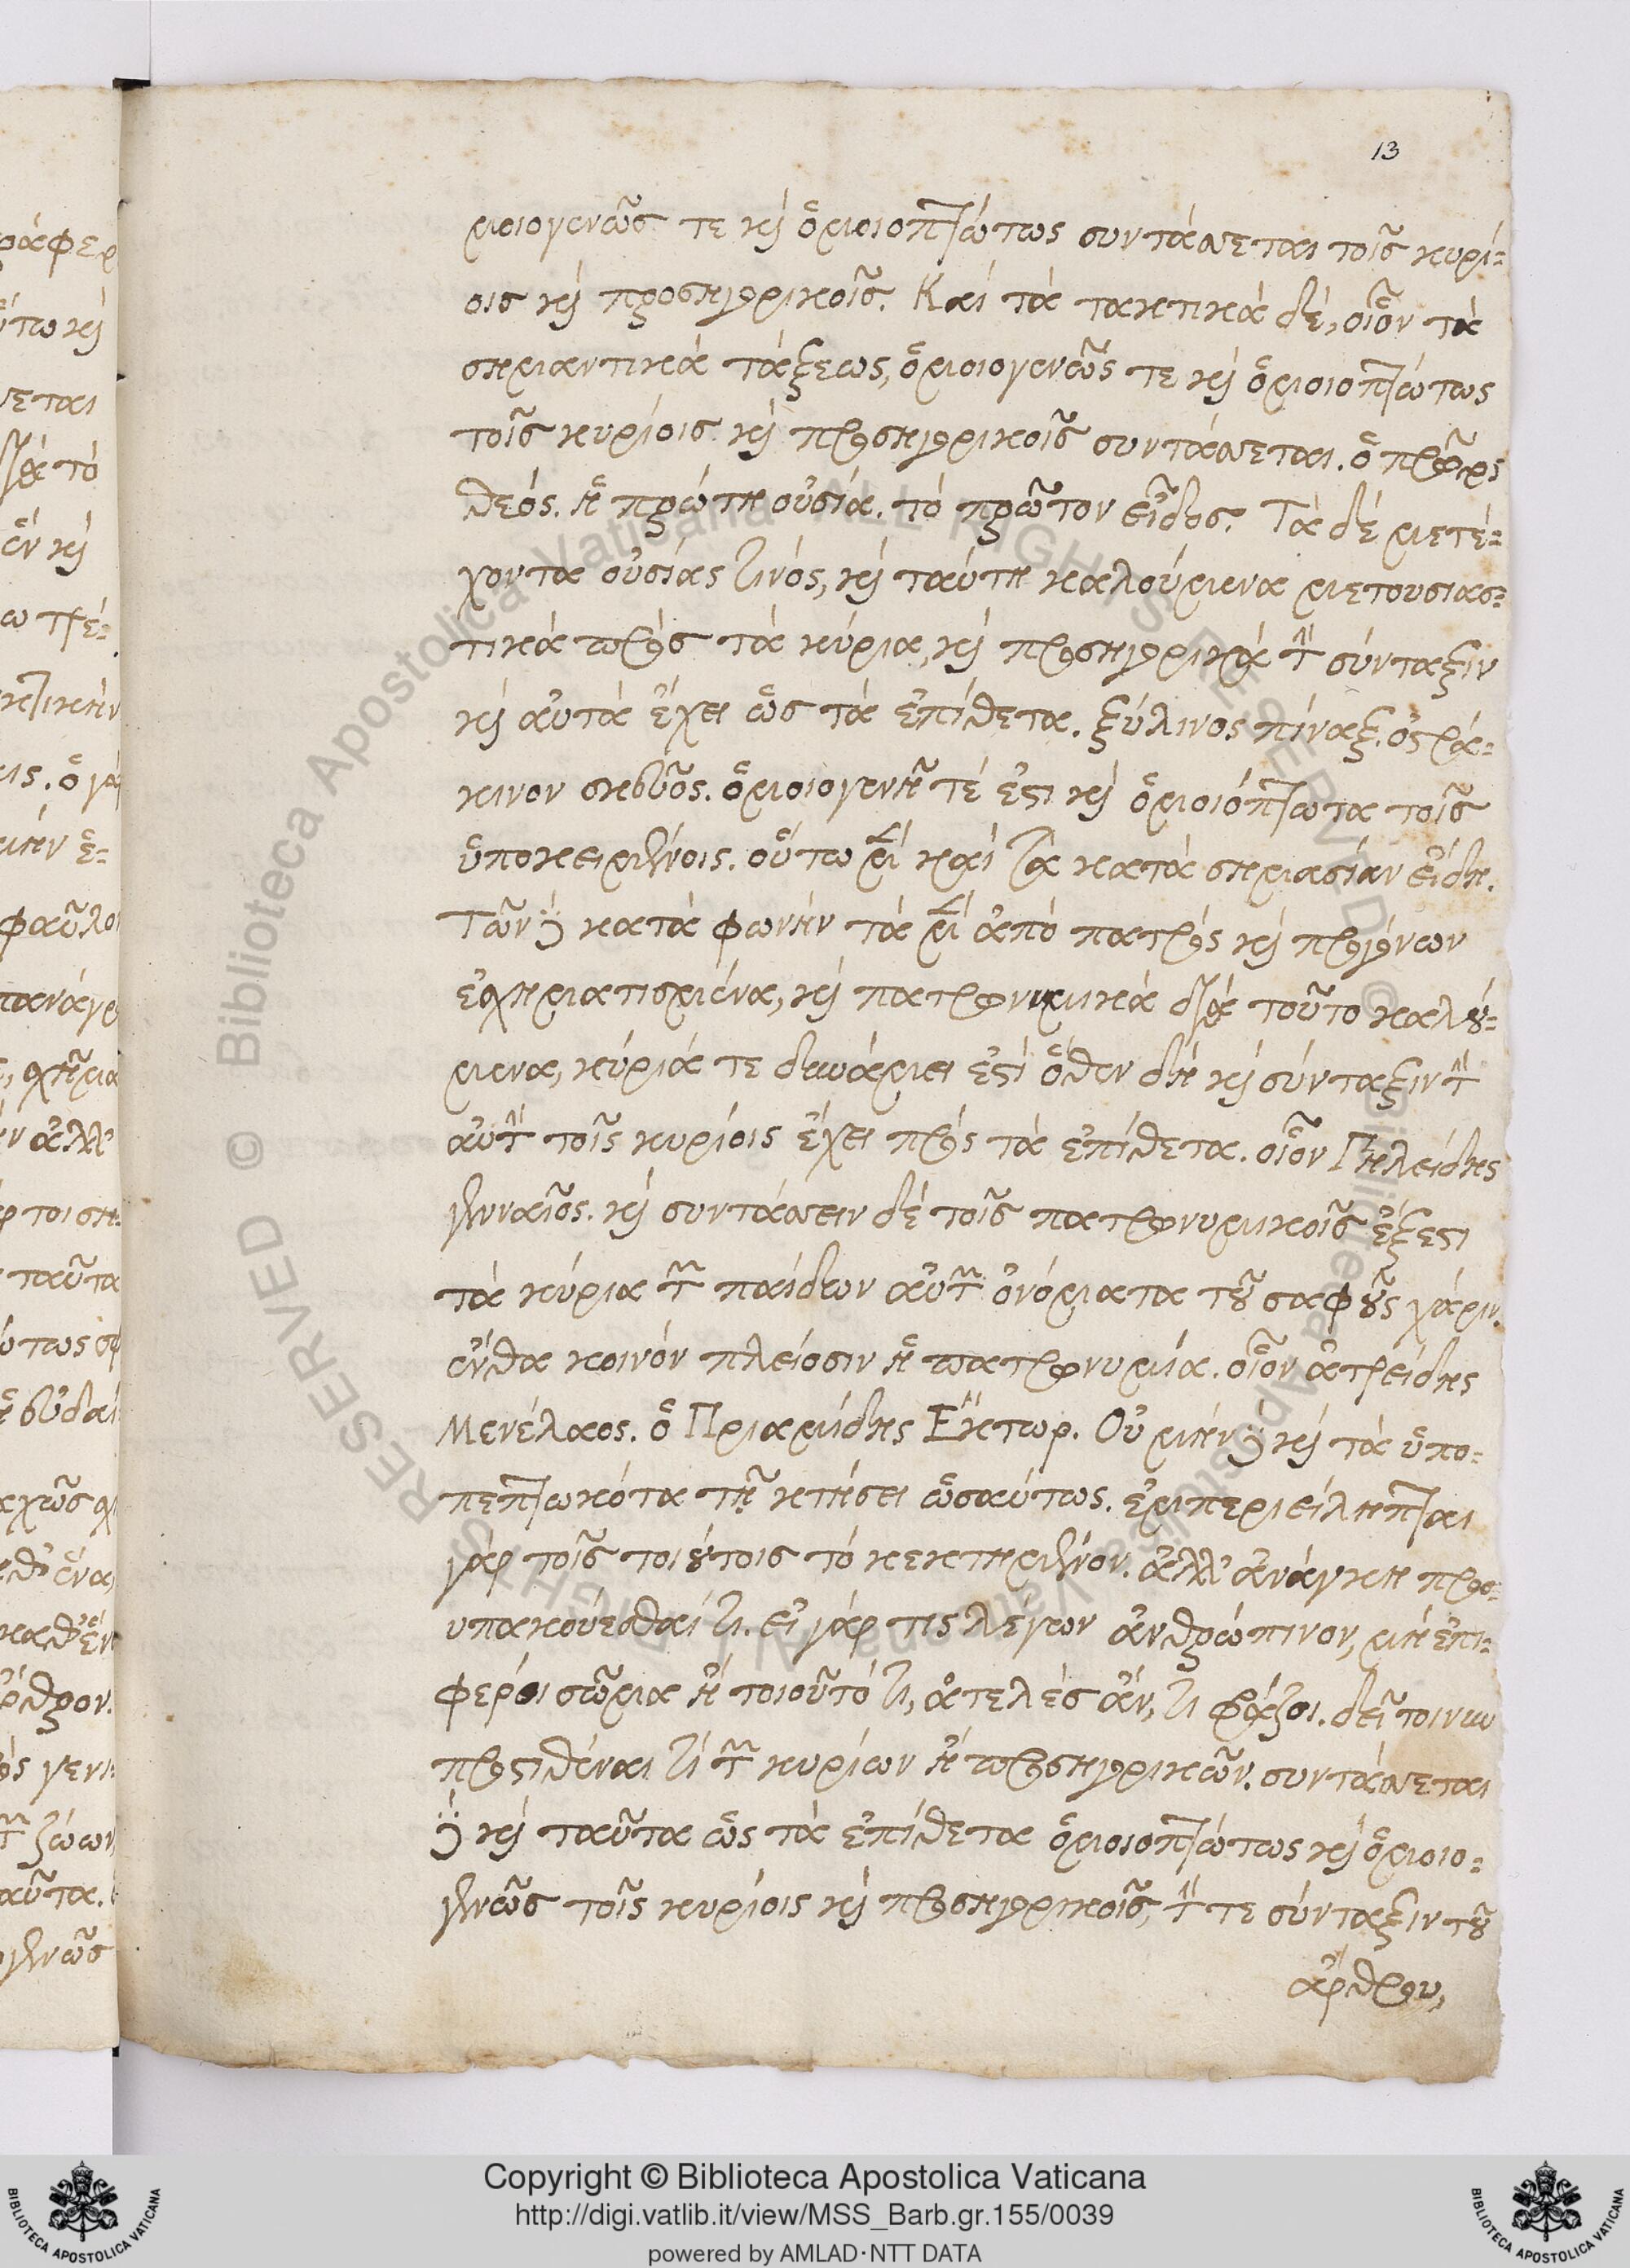 13
μοιογενῶς τε καὶ ὁμοιοπτώτως συντάσσεται τοῖς κυρί-
οις καὶ προσηγορικοῖς. Καὶ τὰ τακτικὰ δὲ, οἷον τὰ
σημαντικὰ τάξεως, ὁμοιογενῶς τε καὶ ὁμοιοπτώτως
τοῖς κυρίοις καὶ προσηγορικοῖς συντάσσεται. ὁ πρῶτος
θεός. ἡ πρώτη οὐσία. τὸ πρῶτον εἶδος. Τὰ δὲ μετέ-
χοντα οὐσίας τινός, καὶ ταύτη καλούμενα μετουσιασ-
τικὰ πρὸς τὰ κύρια, καὶ προσηγορικὰ τὴν σύνταξιν
καὶ αὐτὰ ἔχει ὡς τὰ ἐπίθετα. ξύλινος πίναξ. ὀστρά-
κινον σκεῦος. ὁμοιογενῆ τέ ἐστι καὶ ὁμοιόπτωτα τοῖς
ὑποκειμένοις. οὕτω μὲν καὶ τὰ κατὰ σημασίαν εἴδη.
Τῶν δὲ κατὰ φωνὴν τὰ μὲν ἀπὸ πατρὸς καὶ προγόνων
ἐσχηματισμένα, καὶ πατρωνυμικὰ διὰ τοῦτο καλού-
μενα, κύριά τε δυνάμει ἐστὶ ὅθεν δὴ καὶ σύνταξιν τὴν
αὐτὴν τοῖς κυρίοις ἔχει πρὸς τὰ ἐπίθετα. οἷον Πηλείδης
γενναῖος. καὶ συντάσσειν δὲ τοῖς πατρωνυμικοῖς ἔξεστι
τὰ κύρια τῶν παίδων αὐτῶν ὀνόματα τοῦ σαφοῦς χάριν.
ἔνθα κοινὸν πλείοσιν ἡ πατρωνυμία. οἷον ἀτρείδης
Μενέλαος. ὁ Πριαμίδης Ἕκτωρ. Οὐ μὴν δὲ καὶ τὰ ὑπο-
πεπτωκότα τῇ κτήσει ὡσαύτως. ἐμπεριείληπται
γὰρ τοῖς τοιούτοις τὸ κεκτημένον. ἀλλ' ἀνάγκη προσ-
υπακούεσθαί τι. εἰ γάρ τις λέγων ἀνθρώπινον, μὴ ἐπι-
φέροι σῶμα ἢ τοιοῦτό τι, ἀτελὲς ἄν, τι φράζοι. δεῖ τοίνυν
προστιθέναι τί τῶν κυρίων ἢ προσηγορικῶν. συντάσσεται
δὲ καὶ ταῦτα ὡς τὰ ἐπίθετα ὁμοιοπτώτως καὶ ὁμοιο-
γενῶς τοῖς κυρίοις καὶ προσηγορικοῖς, τὴν τε σύνταξιν τοῦ
ἄρθρου,
Copyright © Biblioteca Apostolica Vaticana
http://digi.vatlib.it/view/MSS_Barb.gr.155/0039
powered by AMLAD·NTT DATA